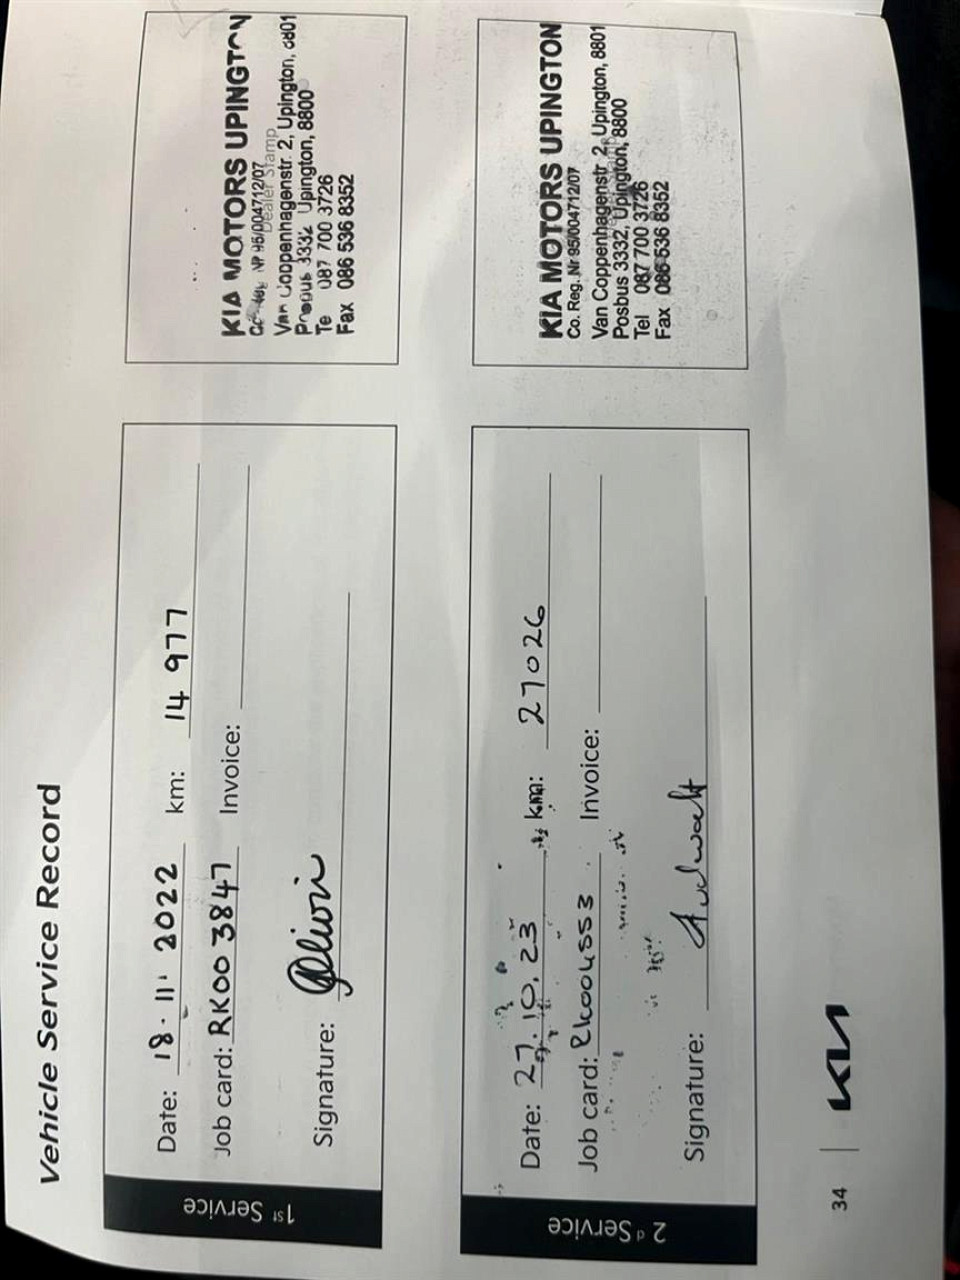 Vehicle Service Record
1st Service
Date: 18.11.2022 km: 14 977
Job card: RK003847 Invoice:
Signature:
KIA MOTORS UPINGTON
95/004712/07
Dealer Stamp
Van Coppenhagenstr. 2, Upington, 8801
3332 Upington, 8800
Te 087 700 3726
Fax 086 536 8352
2 d Service
Date: 27.10.23 km: 27026
Job card: RK004553 Invoice:
Signature:
KIA MOTORS UPINGTON
Co. Reg. Nr 95/004712/07
Van Coppenhagenstr 2, Upington, 8801
Posbus 3332, Upington, 8800
Tel 087 700 3726
Fax 086 536 8352
34 | KIA